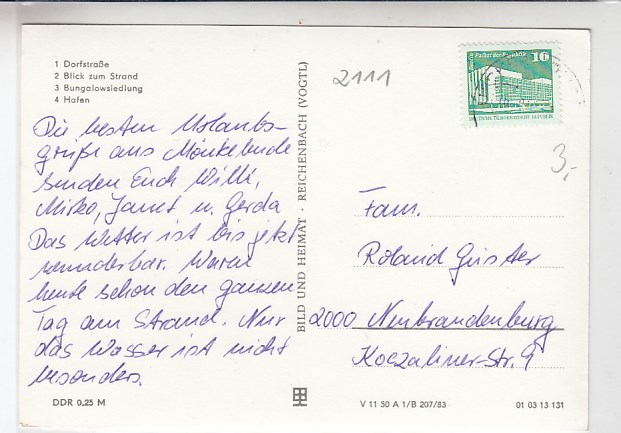 1 Dorfstraße
2 Blick zum Strand
3 Bungalowsiedlung
4 Hafen
Die besten Urlaubs-
grüße aus Mönkebude
senden Euch Willi,
Mirko, Janet u. Gerda
Das Wetter ist bis jetzt
wunderbar. Waren
heute schon den ganzen
Tag am Strand. Nur
das Wasser ist nicht
besonders.
DDR 0,25 M
BILD UND HEIMAT · REICHENBACH (VOGTL)
2111
Berlin, Palast der Republik
10
DEUTSCHE DEMOKRATISCHE REPUBLIK
3,-
Fam.
Roland Günter
2000 Neubrandenburg
Koszaliner-Str. 9
V 11 50 A 1/B 207/83
01 03 13 131